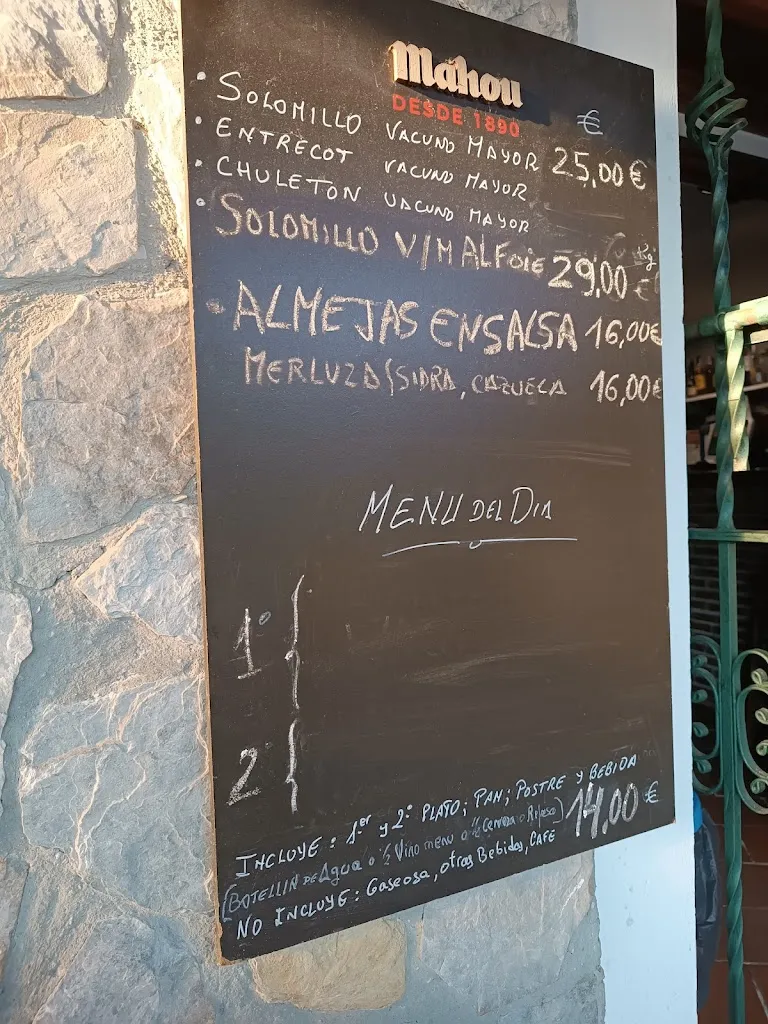 Mahou
DESDE 1890
€
• SOLOMILLO VACUNO MAYOR 25,00€
• ENTRECOT VACUNO MAYOR
• CHULETON VACUNO MAYOR
• SOLOMILLO V/M AL FOIE 29,00 €
• ALMEJAS EN SALSA 16,00€
MERLUZA SIDRA, CAZUELA 16,00€
MENU DEL DIA
1º {
2 {
INCLUYE: 1er y 2º PLATO; PAN; POSTRE Y BEBIDA
(BOTELLIN DE Agua o ½ Vino menu o ½ Cerveza o Refresco) 14,00 €
NO INCLUYE: Gaseosa, otras Bebidas, CAFE